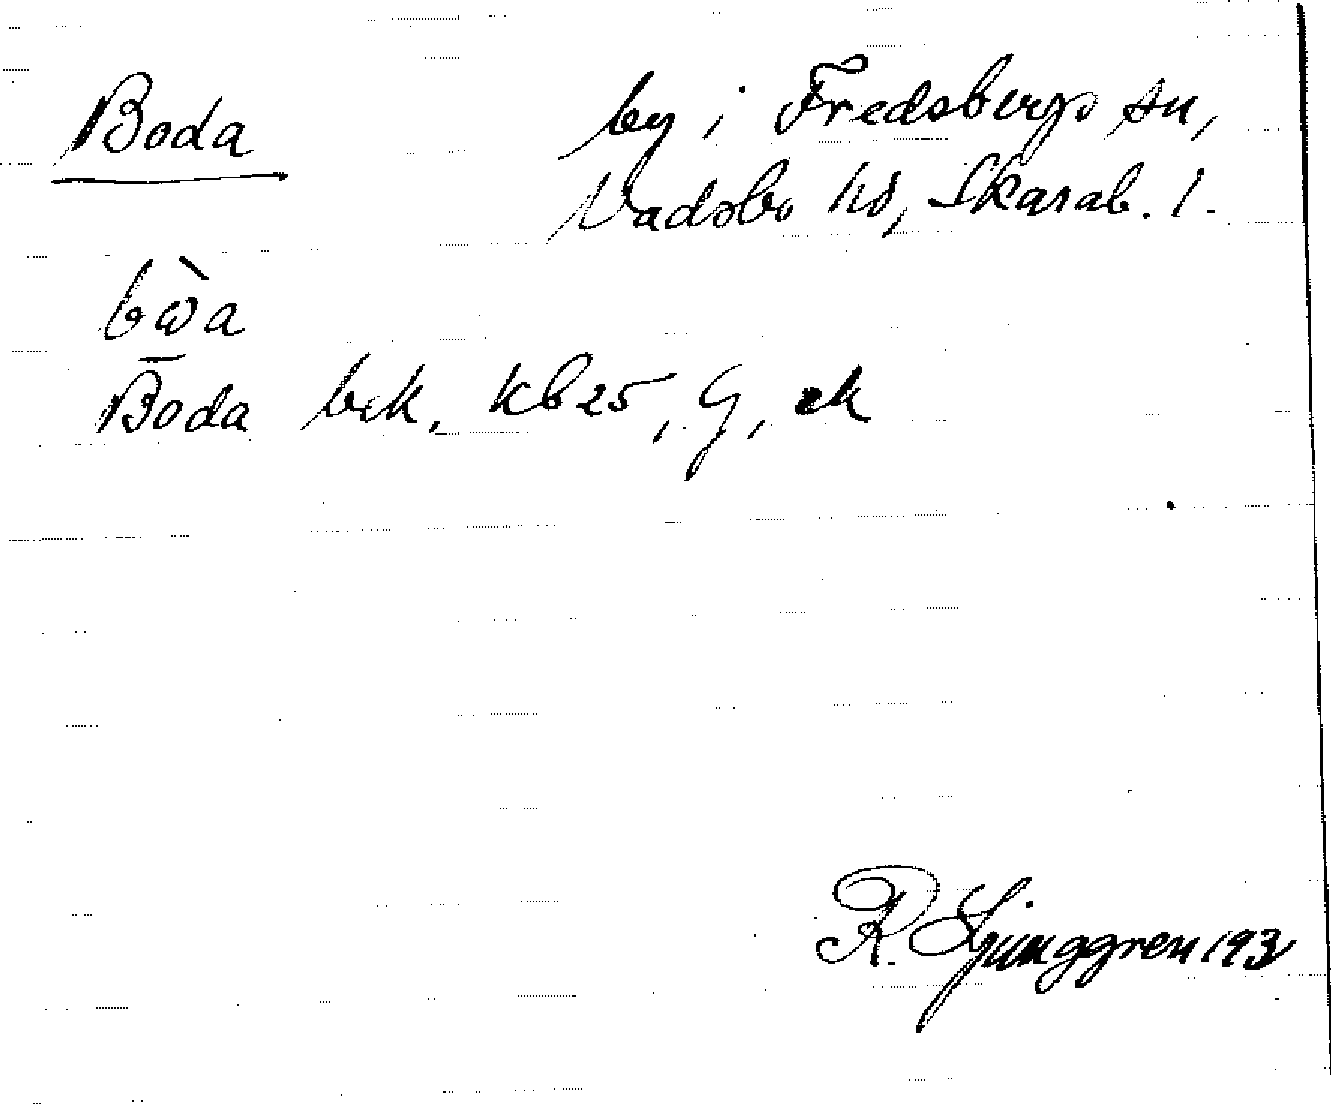 Boda by i Fredsbergs sn,
Vadsbo hd, Skarab. l.
bὼa
Boda bek, kb 25, G, ek
R. Ljunggren 193